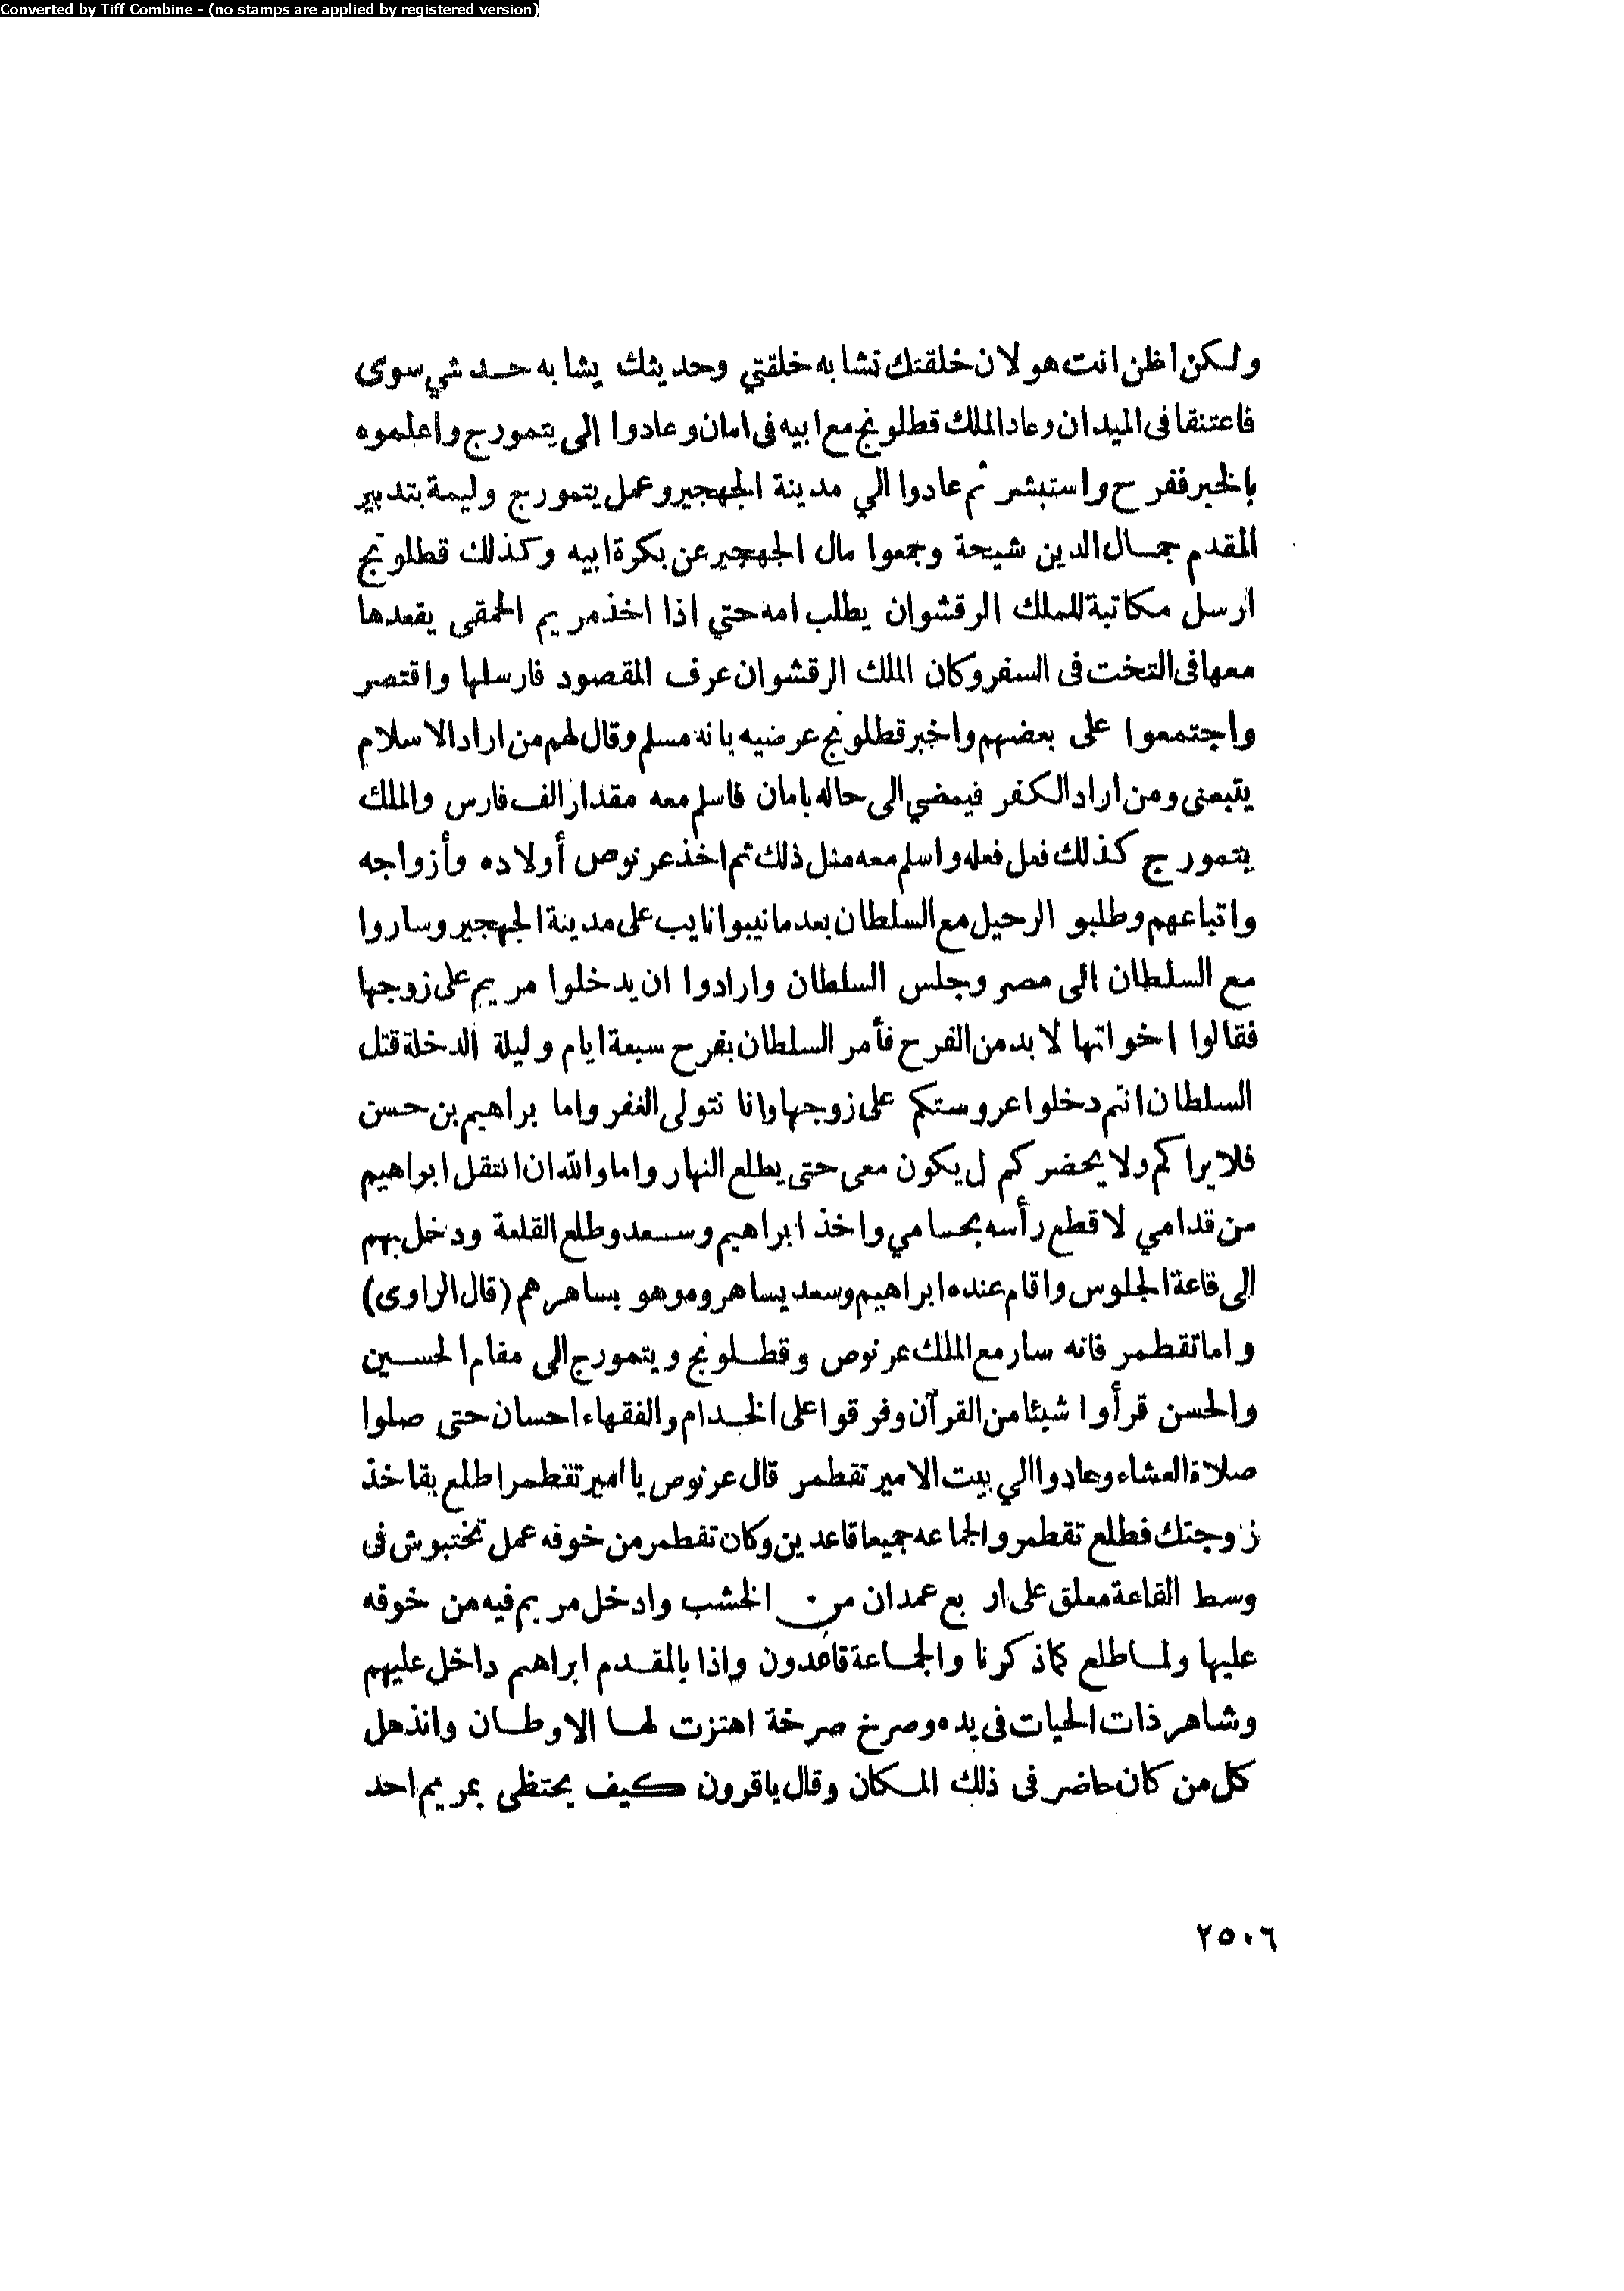 Converted by Tiff Combine - (no stamps are applied by registered version)
ولكن اظن انت هو لان خلقتك تشابه خلقتي وحديثك يشابه حديثي سوى
فاعتنقا فى الميدان وعاد الملك قطلونج مع ابيه فى امان وعادوا الى يتمورج واعلموه
بالخبر ففرح واستبشر ثم عادوا الي مدينة الجهجير وعمل يتمورج وليمة بتدبير
المقدم جمال الدين شيحة وجمعوا مال الجهجير عن بكرة ابيه وكذلك قطلونج
ارسل مكاتبة للملك الرقشوان يطلب امه حتي اذا اخذ مريم الحمقى يقعدها
معها فى التخت فى السفر وكان الملك الرقشوان عرف المقصود فارسلها واقتصر
واجتمعوا على بعضهم واخبر قطلونج عرضيه بانه مسلم وقال لهم من اراد الاسلام
يتبعنى ومن اراد الكفر فيمضي الى حاله بامان فاسلم معه مقدار الف فارس والملك
يتمورج كذلك فعل فعله واسلم معه مثل ذلك ثم اخذ عرنوص أولاده وأزواجه
واتباعهم وطلبو الرحيل مع السلطان بعد ما نيبوا نايب على مدينة الجهجير وساروا
مع السلطان الى مصر وجلس السلطان وارادوا ان يدخلوا مريم على زوجها
فقالوا اخواتها لابد من الفرح فأمر السلطان بفرح سبعة ايام وليلة الدخلة قتل
السلطان انتم دخلوا عروستكم على زوجها وانا نتولى الغفر واما براهيم بن حسن
فلا يراكم ولا يحضركم ل يكون معى حتى يطلع النهار واما والله ان انتقل ابراهيم
من قدامي لاقطع رأسه بحسامي واخذ ابراهيم وسعد وطلع القلعة ودخل بهم
الى قاعة الجلوس واقام عنده ابراهيم وسعد يساهرومو هو يساهرهم (قال الراوى)
واما تقطمر فانه سار مع الملك عرنوص وقطلونج ويتمورج الى مقام الحسين
والحسن قرأوا شيئا من القرآن وفرقوا على الخدام والفقهاء احسان حتى صلوا
صلاة العشاء وعادوا الي بيت الامير تقطمر قال عرنوص يا امير تقطمر اطلع بقا خذ
زوجتك فطلع تقطمر والجماعه جميعا قاعدين وكان تقطمر من خوفه عمل تختبوش فى
وسط القاعة معلق على اربع عمدان من الخشب وادخل مريم فيه من خوفه
عليها ولما طلع كما ذكرنا والجماعة قاعدون واذا بالمقدم ابراهم داخل عليهم
وشاهر ذات الحيات فى يده وصرخ صرخة اهتزت لها الاوطان وانذهل
كل من كان حاضر فى ذلك المكان وقال يا قرون كيف يحتظى بمريم احد
٢٥٠٦